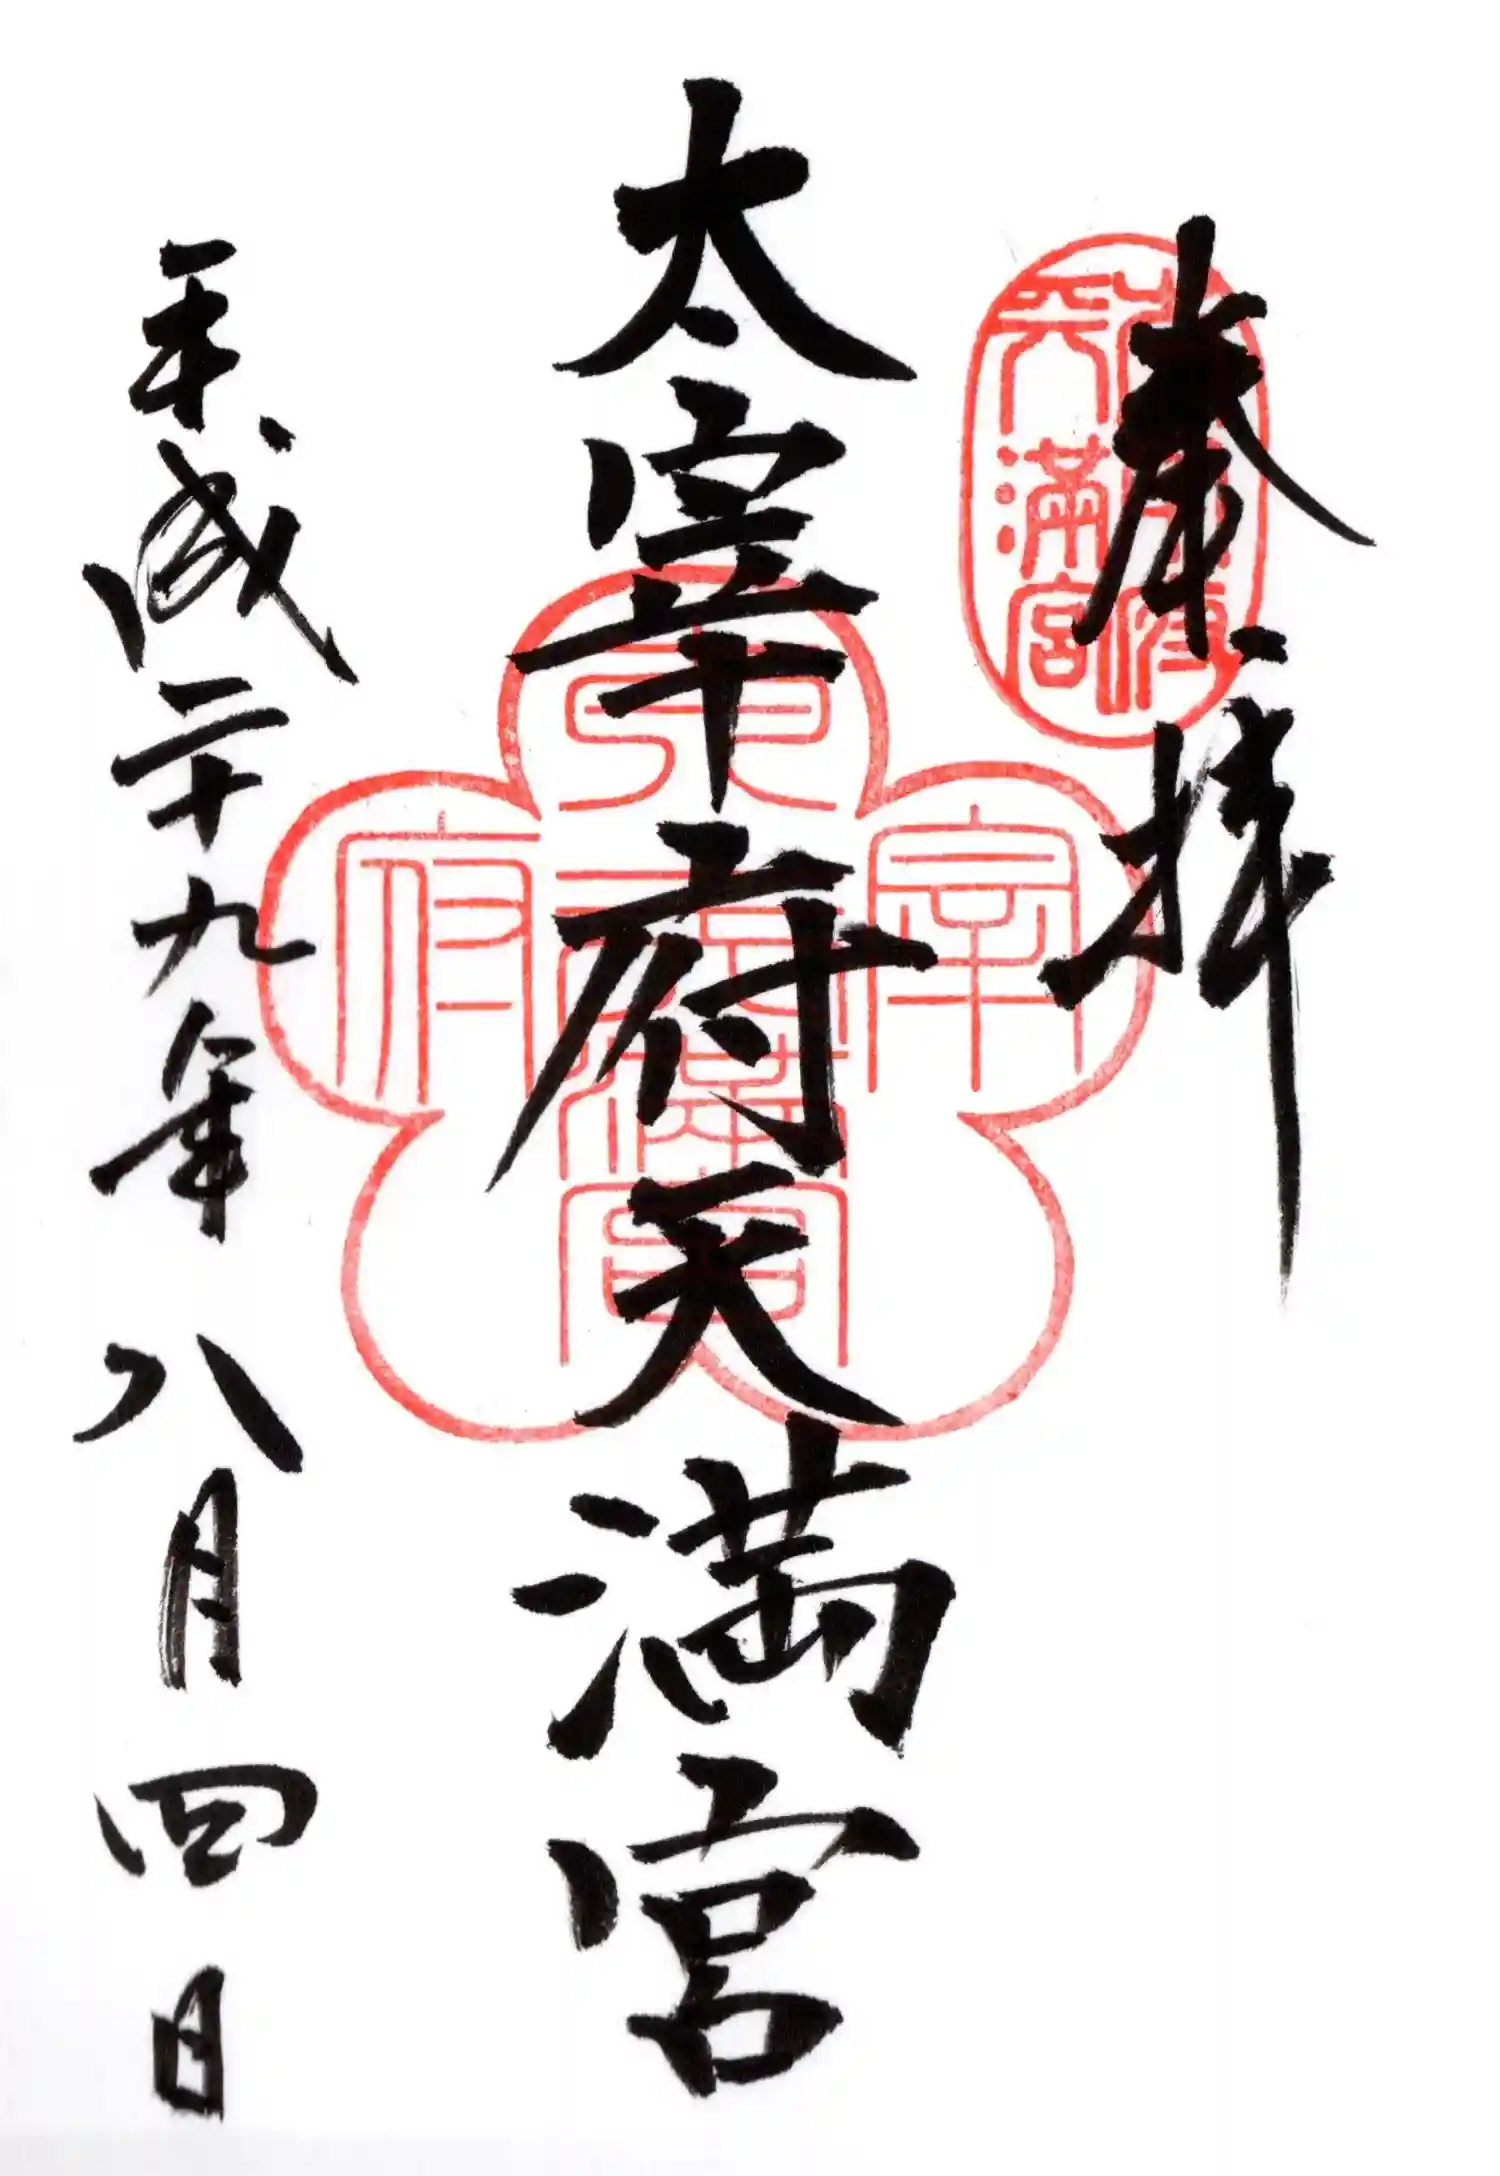 奉拝
太宰府天満宮
平成二十九年八月四日
太宰府
天満宮
宰
府
天満宮